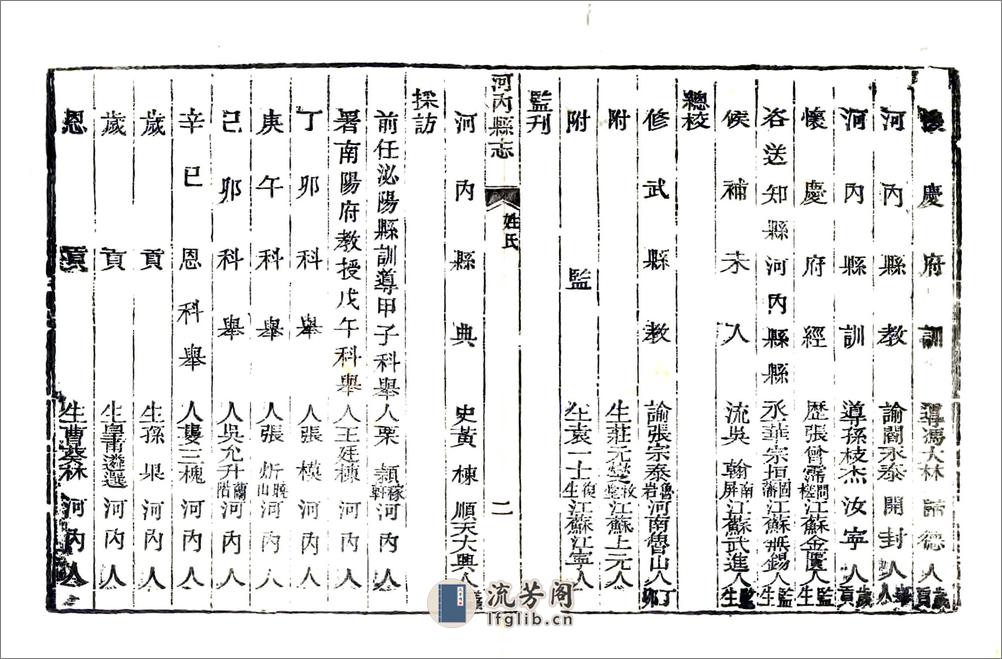 懷慶府訓導馮大林 德人歲貢
河內縣教諭閻永泰開封人舉人
河內縣訓導孫枝杰汝寧人歲貢
懷慶府經歷張會霈 江蘇金匱人監生
咨送知縣河內縣縣丞華宗垣 江蘇無錫人監生
候補未入流吳翰南屏江蘇武進人監生
總校
修武縣教諭張宗泰魯岩河南魯山人丁卯
附生莊元燮 江蘇上元人
附監生袁一士 江蘇江寧人
監刊
河內縣典史黃棟順天大興人
河內縣志
姓氏
二
採訪
前任泌陽縣訓導甲子科舉人栗穎稼軒河內人
署南陽府教授戊午科舉人王廷棟河內人
丁卯科舉人張模河內人
庚午科舉人張炘 山河內人
己卯科舉人吳允升蘭階河內人
辛巳恩科舉人隻三槐河內人
歲貢生孫果河內人
歲貢生皇甫遴選河內人
恩貢生曹葵林河內人
流芳阁
lfglib.cn